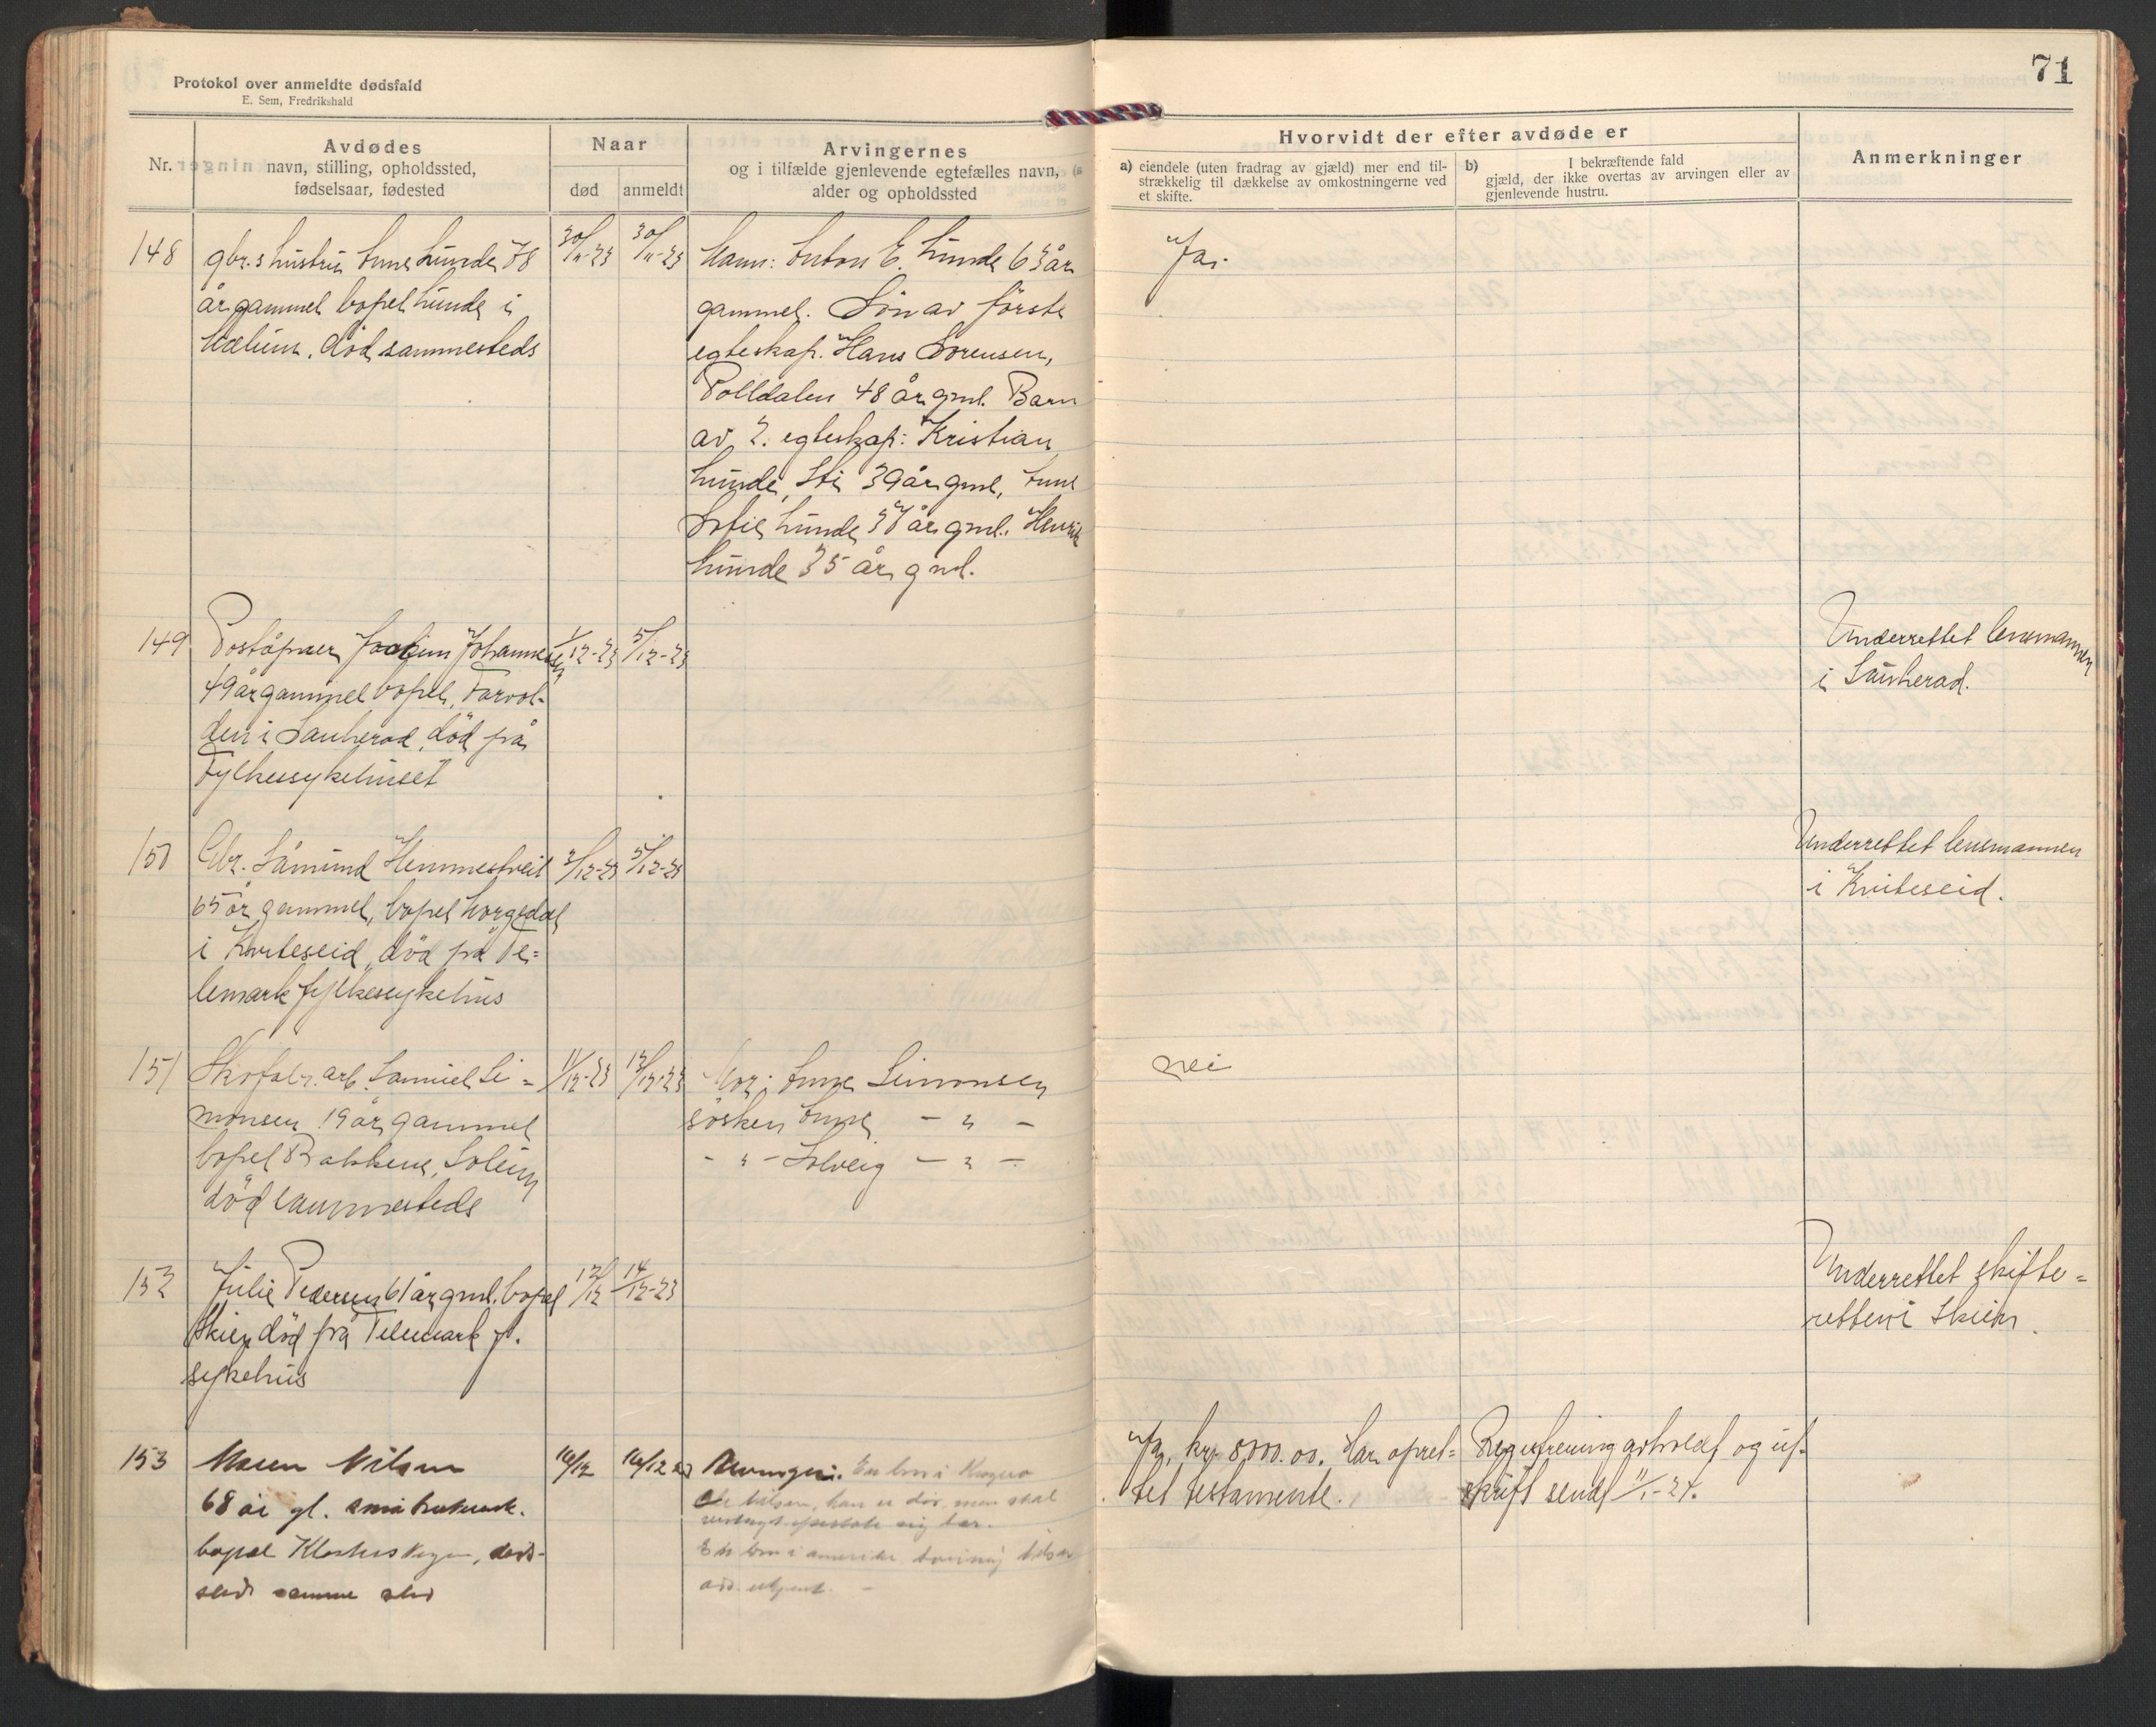 71
Protokol over anmeldte dødsfald
E. Sem, Fredrikshald
Nr.
Avdødes
navn, stilling, opholdssted,
fødselsaar, fødested
Naar
død
anmeldt
Arvingernes
og i tilfælde gjenlevende egtefælles navn,
alder og opholdssted
Hvorvidt der efter avdøde er
a) eiendele (uten fradrag av gjæld) mer end til-
strækkelig til dækkelse av omkostningerne ved
et skifte.
b) I bekræftende fald
gjæld, der ikke overtas av arvingen eller av
gjenlevende hustru.
Anmerkninger
148
gbr.s hustru Anne Lunde 78
år gammel bopel Lunde i
Mælum, död sammesteds
30/11-23
30/11-23
Mann: Anton E. Lunde 63 år
gammel. Sön av förste
egteskap. Hans Sörensen,
Polldalen 48 år gml. Barn
av 2. egteskap: Kristian
Lunde, Sti 39 år gml, Anne
Sofie Lunde 37 år gml. Henrik
Lunde 35 år gml.
Ja.
149
Poståpner Joakim Johannesen
49 år gammel bopel, Farvol-
den i Sauherad, död på
Fylkessykehuset
1/12-23
5/12-23
Underrettet lensmannen
i Sauherad.
150
Gbr. Såmund Hemmestveit
65 år gammel, bopel Morgedal
i Kviteseid, död på Te=
lemark fylkessykehus
3/12-23
5/12-23
Underrettet lensmannen
i Kviteseid.
151
Skofabr. arb. Samuel Si=
monsen 19 år gammel
bopel Bakkene, Solum
död sammesteds
11/12-23
12/12-23
Mor: Anne Simonsen
sösken Anne - " -
- " - Solveig - " -
nei
152
Julie Pedersen 61 år gml. bopel
Skien död på Telemark f.
sykehus
12/12
14/12-23
Underrettet skifte=
retten i Skien.
153
Maren Nilsen
68 år gl. små
bopel Klosterskogen, döds-
sted samme sted
16/12
16/12 23
Arvinger: En bror i Kragerø
Ole Nilsen, han er død, men skal
En bror i amerika Nilsen
adr. ukjent. -
Ja, kr. 8000.00. Har opret=
tet testamente.
Registrering avholdt og ut-
skrift sendt 11/1-24.